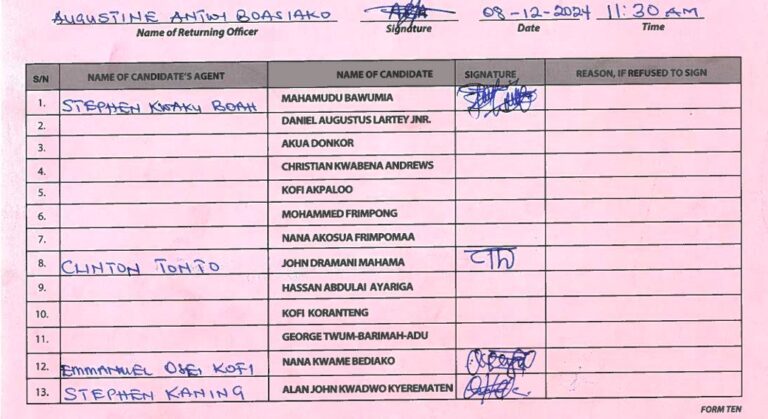 AUGUSTINE ANTWI BOASIAKO 08-12-2024 11:30 AM
Name of Returning Officer Signature Date Time
S/N NAME OF CANDIDATE'S AGENT NAME OF CANDIDATE SIGNATURE REASON, IF REFUSED TO SIGN
1. STEPHEN KWAKU BOAH MAHAMUDU BAWUMIA
2. DANIEL AUGUSTUS LARTEY JNR.
3. AKUA DONKOR
4. CHRISTIAN KWABENA ANDREWS
5. KOFI AKPALOO
6. MOHAMMED FRIMPONG
7. NANA AKOSUA FRIMPOMAA
8. CLINTON TONTO JOHN DRAMANI MAHAMA
9. HASSAN ABDULAI AYARIGA
10. KOFI KORANTENG
11. GEORGE TWUM-BARIMAH-ADU
12. EMMANUEL OSEI KOFI NANA KWAME BEDIAKO
13. STEPHEN KANING ALAN JOHN KWADWO KYEREMATEN
FORM TEN